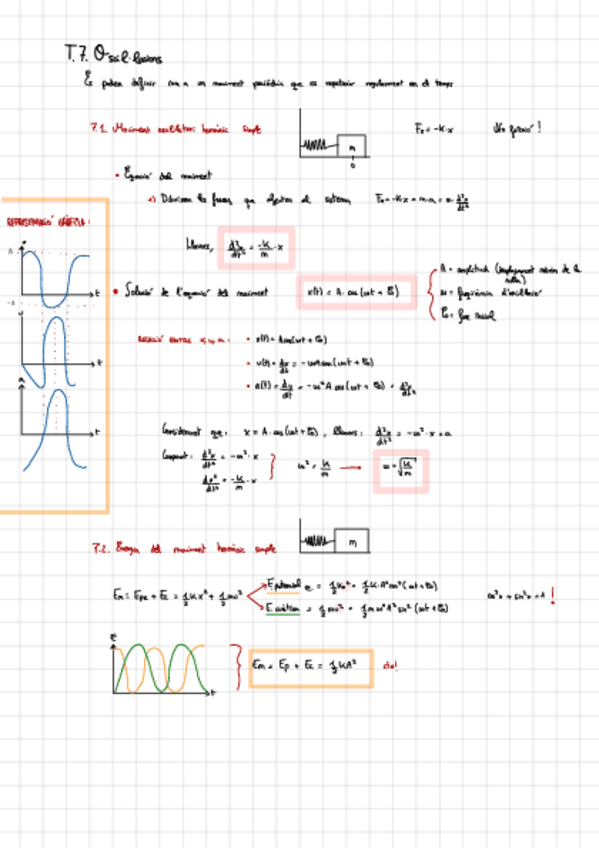 T.7. Oscil·lacions
Es poden definir com a un moviment periòdic que es repeteix regularment en el temps
7.1. Moviment oscil·latori harmònic simple
m
0
Fe = -K·x
• Equació del moviment
Fe = -K·x = m·a = m·d²x/dt²
REPRESENTACIÓ GRÀFICA:
Llavors, d²x/dt² = -K/m · x
• Solució de l'equació del moviment
x(t) = A·cos(ωt + φ₀)
A = amplitud
ω = freqüència d'oscil·lació
φ₀ = fase inicial
RELACIÓ ENTRE x, v, a:
• x(t) = A cos(ωt + φ₀)
• v(t) = dx/dt = -ωA sin(ωt + φ₀)
• a(t) = dv/dt = -ω² A cos(ωt + φ₀) = d²x/dt²
Considerant que: x = A·cos(ωt + φ₀), llavors: d²x/dt² = -ω²·x = a
Comparant: d²x/dt² = -ω²·x
d²x/dt² = -K/m · x
ω² = K/m → ω = √K/m
7.2. Energia del moviment harmònic simple
m
Em = Epe + Ec = ½Kx² + ½mv²
E. potencial e = ½Kx² = ½K·A²cos²(ωt + φ₀)
E. cinètica = ½mv² = ½mω²A² sin²(ωt + φ₀)
cos²x + sin²x = 1 !
E
t
Em = Ep + Ec = ½KA²